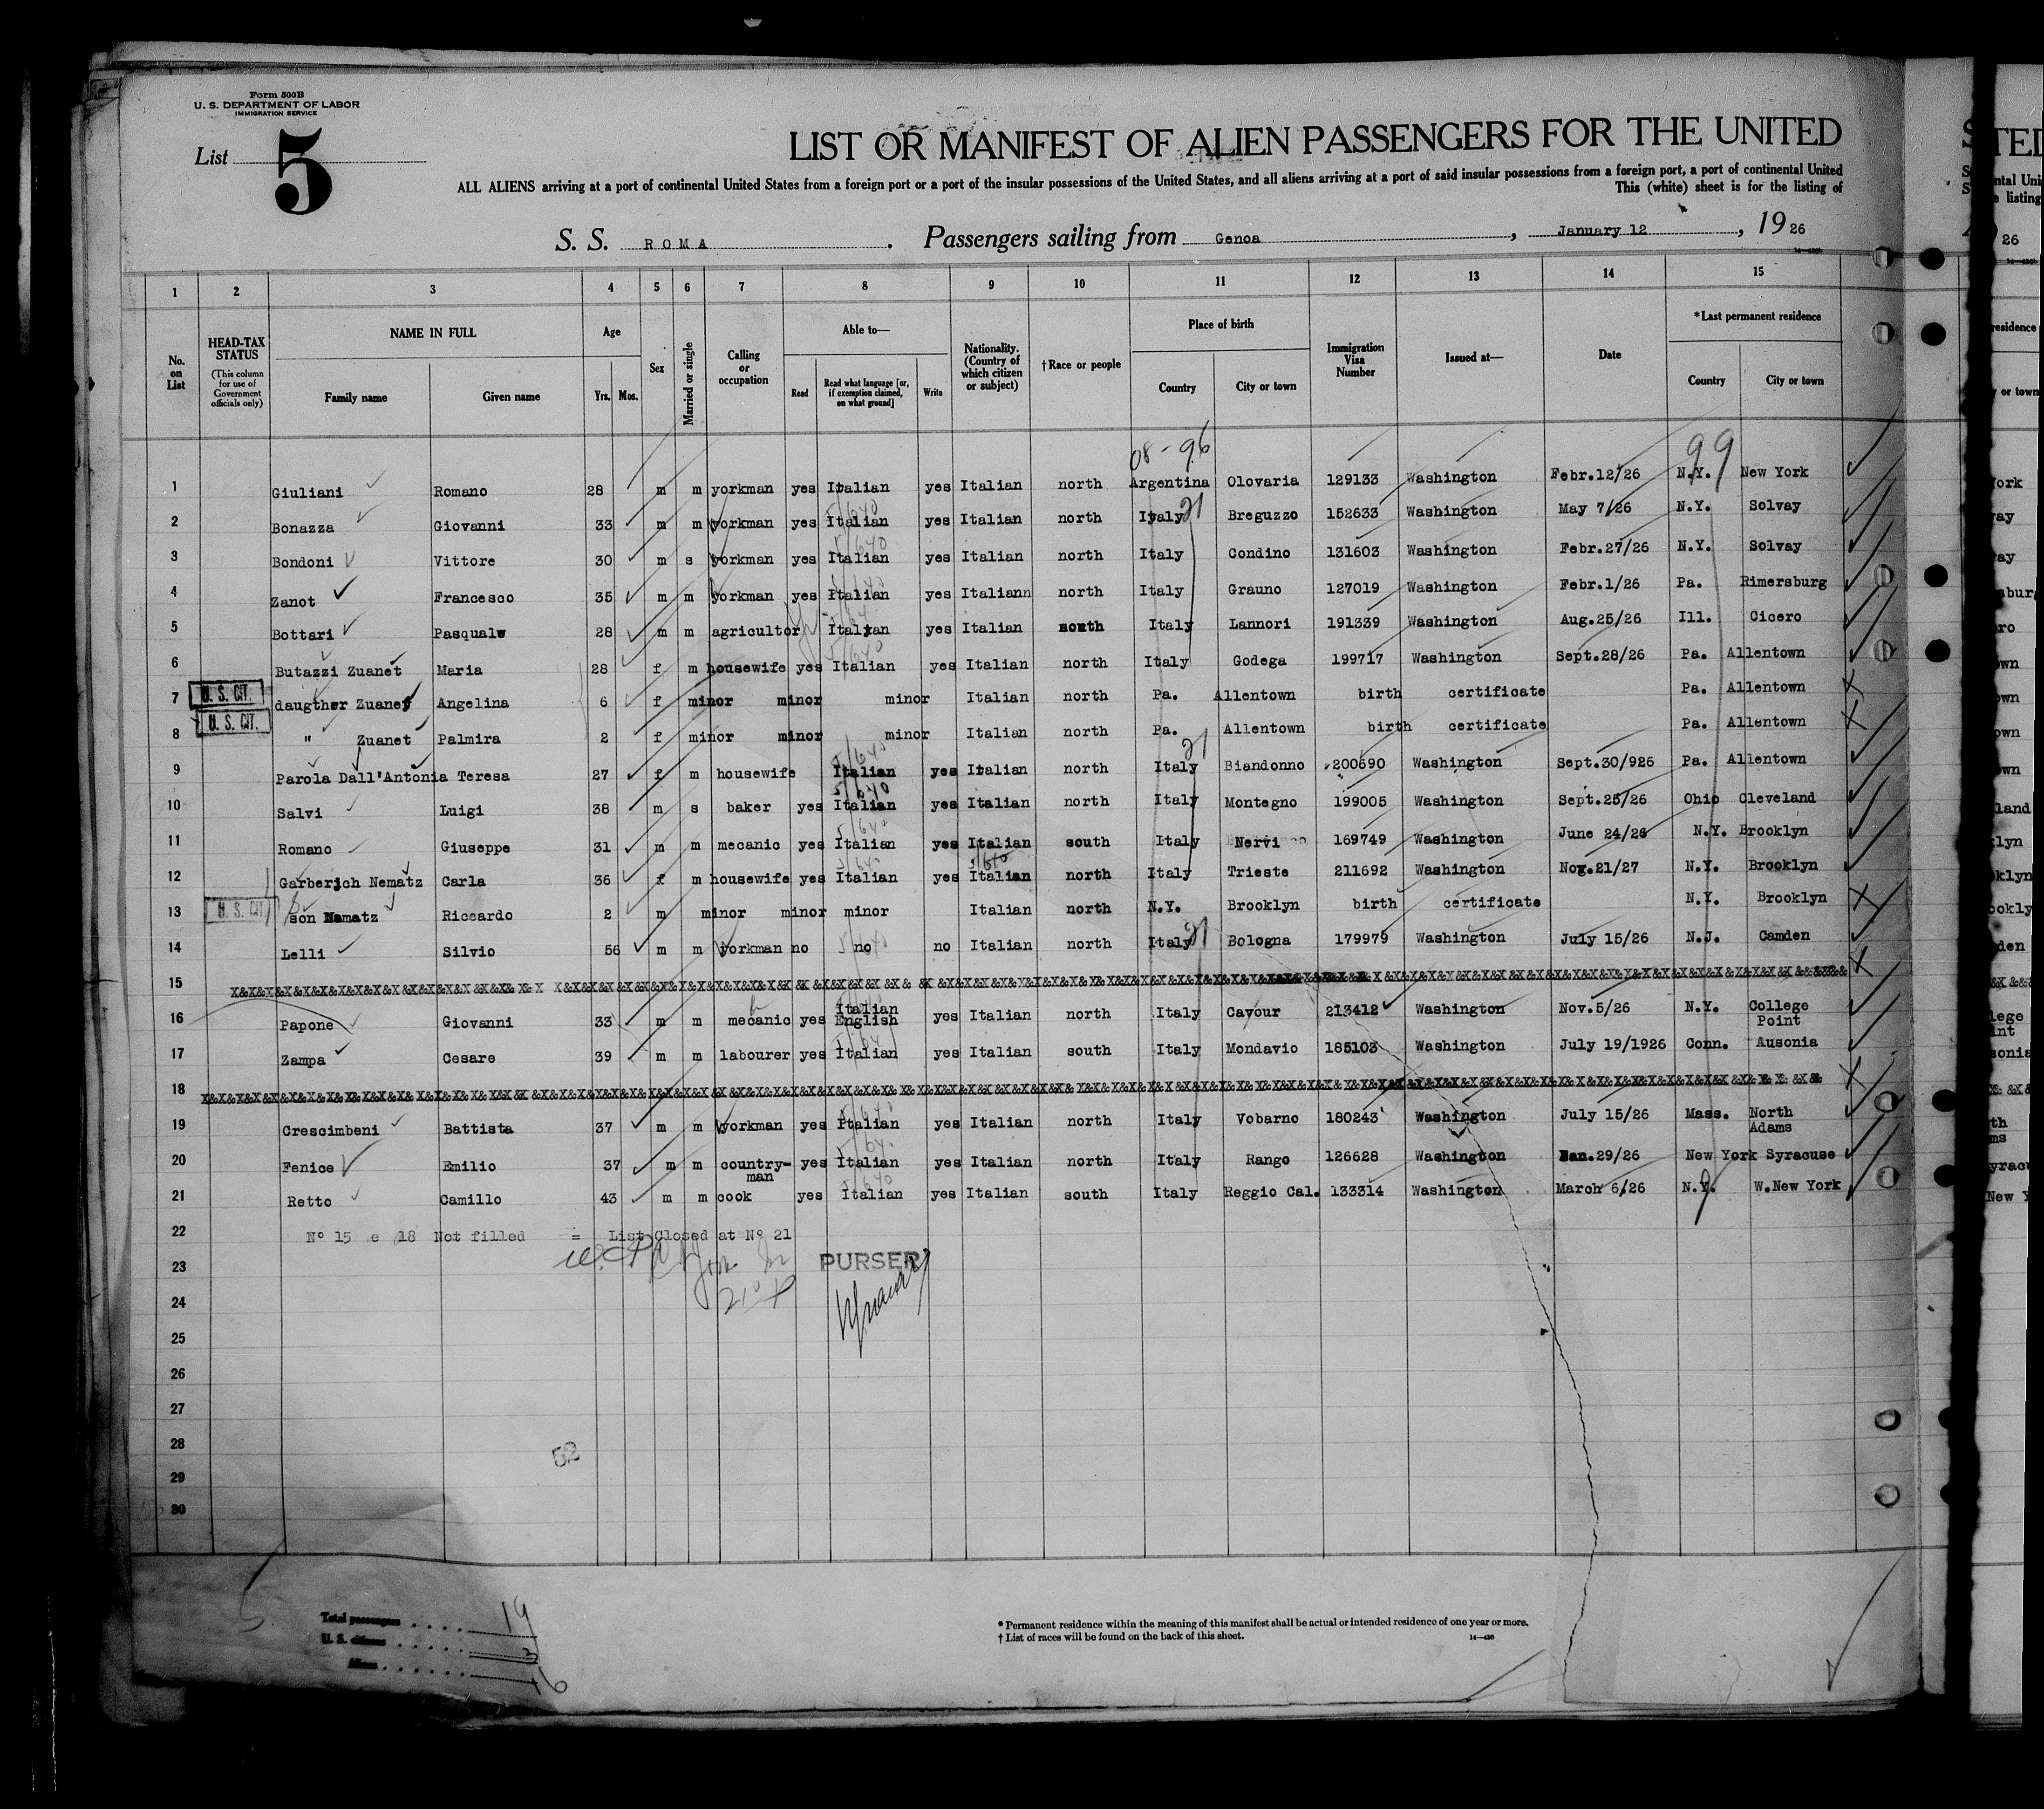 Form 500B
U. S. DEPARTMENT OF LABOR
IMMIGRATION SERVICE
List 5
LIST OR MANIFEST OF ALIEN PASSENGERS FOR THE UNITED
ALL ALIENS arriving at a port of continental United States from a foreign port or a port of the insular possessions of the United States, and all aliens arriving at a port of said insular possessions from a foreign port, a port of continental United
This (white) sheet is for the listing of
S. S. ROMA . Passengers sailing from Genoa , January 12 , 19 26
1 2 3 4 5 6 7 8 9 10 11 12 13 14 15
No. on List
HEAD-TAX STATUS (This column for use of Government officials only)
NAME IN FULL Family name Given name
Age Yrs. Mos.
Sex
Married or single
Calling or occupation
Able to— Read Read what language [or, if exemption claimed, on what ground] Write
Nationality. (Country of which citizen or subject)
†Race or people
Place of birth Country City or town
Immigration Visa Number
Issued at—
Date
*Last permanent residence Country City or town
08-96 99
1 Giuliani Romano 28 m m yorkman yes Italian yes Italian north Argentina Olovaria 129133 Washington Febr.12/26 N.Y. New York
2 Bonazza Giovanni 33 m m yorkman yes Italian yes Italian north Italy Breguzzo 152633 Washington May 7/26 N.Y. Solvay
3 Bondoni Vittore 30 m s yorkman yes Italian yes Italian north Italy Condino 131603 Washington Febr.27/26 N.Y. Solvay
4 Zanot Francesco 35 m m yorkman yes Italian yes Italiann north Italy Grauno 127019 Washington Febr.1/26 Pa. Rimersburg
5 Bottari Pasquale 28 m m agricultor Italian yes Italian north Italy Lannori 191339 Washington Aug.25/26 Ill. Cicero
6 Butazzi Zuanet Maria 28 f m housewife yes Italian yes Italian north Italy Godega 199717 Washington Sept.28/26 Pa. Allentown
7 U. S. CIT. daugther Zuanet Angelina 6 f minor minor minor Italian north Pa. Allentown birth certificate Pa. Allentown
8 U. S. CIT. " Zuanet Palmira 2 f minor minor minor Italian north Pa. Allentown birth certificate Pa. Allentown
9 Parola Dall'Antonia Teresa 27 f m housewife Italian yes Italian north Italy Biandonno 200690 Washington Sept.30/926 Pa. Allentown
10 Salvi Luigi 38 m s baker yes Italian yes Italian north Italy Montegno 199005 Washington Sept.25/26 Ohio Cleveland
11 Romano Giuseppe 31 m m mecanic yes Italian yes Italian south Italy Nervi 169749 Washington June 24/26 N.Y. Brooklyn
12 Garberich Nematz Carla 36 f m housewife yes Italian yes Italian north Italy Trieste 211692 Washington Nov.21/27 N.Y. Brooklyn
13 U. S. CIT son Nematz Riccardo 2 m minor minor minor Italian north N.Y. Brooklyn birth certificate N.Y. Brooklyn
14 Lelli Silvio 56 m m yorkman no no no Italian north Italy Bologna 179979 Washington July 15/26 N.J. Camden
15
16 Papone Giovanni 33 m m mecanic yes Italian English yes Italian north Italy Cavour 213412 Washington Nov.5/26 N.Y. College Point
17 Zampa Cesare 39 m m labourer yes Italian yes Italian south Italy Mondavio 185103 Washington July 19/1926 Conn. Ausonia
18
19 Crescimbeni Battista 37 m m yorkman yes Italian yes Italian north Italy Vobarno 180243 Washington July 15/26 Mass. North Adams
20 Fenice Emilio 37 m m country-man yes Italian yes Italian north Italy Rango 126628 Washington Jan.29/26 New York Syracuse
21 Retto Camillo 43 m m cook yes Italian yes Italian south Italy Reggio Cal. 133314 Washington March 6/26 N.Y. W.New York
22 Nº 15 e 18 Not filled = List Closed at Nº 21
23 PURSER
24
25
26
27
28
52
29
30
Total passengers 19
U. S. citizens 3
Aliens 16
* Permanent residence within the meaning of this manifest shall be actual or intended residence of one year or more.
† List of races will be found on the back of this sheet.